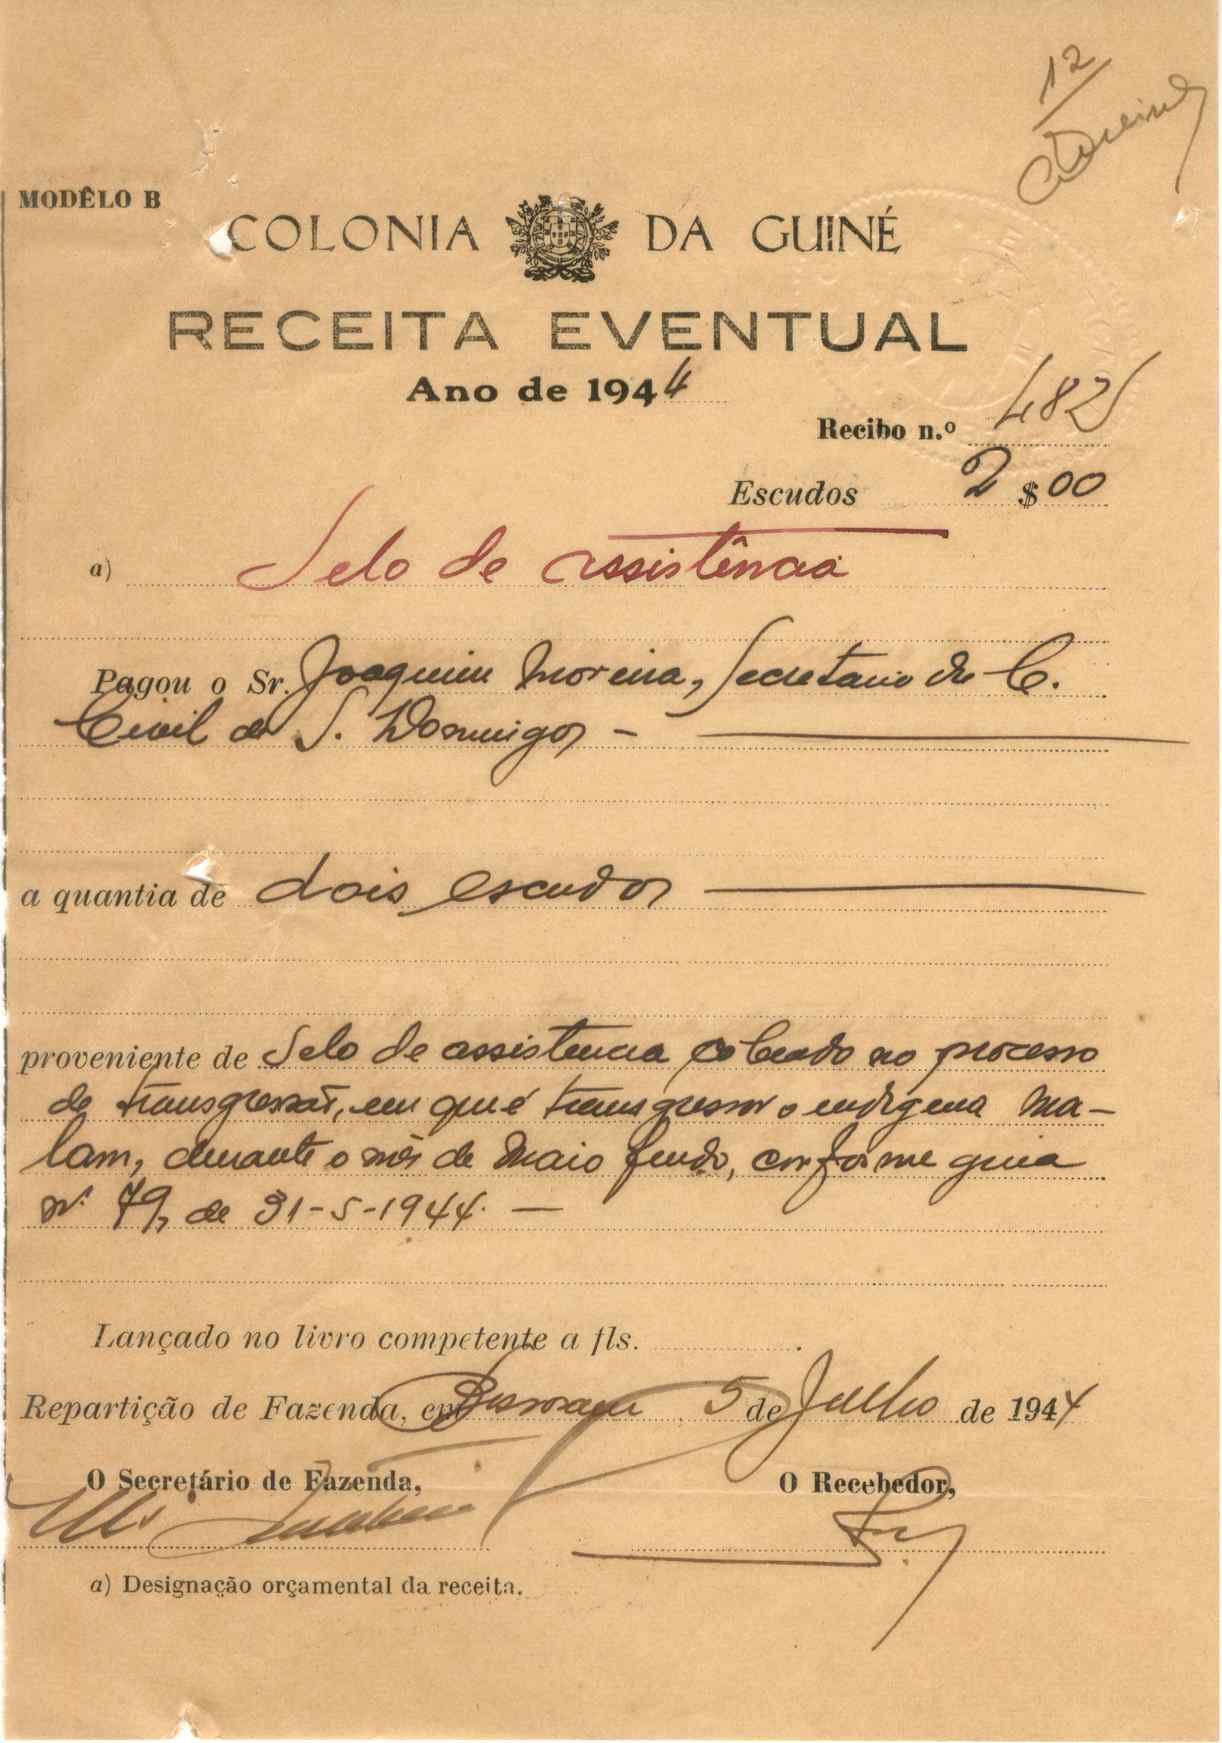 12
MODÊLO B
COLONIA DA GUINÉ
RECEITA EVENTUAL
Ano de 1944
Recibo n.º 482
Escudos 2 $ 00
a) Selo de assistência
Pagou o Sr. Joaquim Moreira, Secretario da C.
Civil de S. Domingos -
a quantia de dois escudos
proveniente de Selo de assistencia cobrado no processo
de transgressão, em que é transgressor o indigena Ma-
lam, durante o mês de Maio findo, conforme guia
nº 79, de 31-5-1944. -
Lançado no livro competente a fls.
Repartição de Fazenda, em 5 de Julho de 1944
O Secretário de Fazenda,
O Recebedor,
a) Designação orçamental da receita.